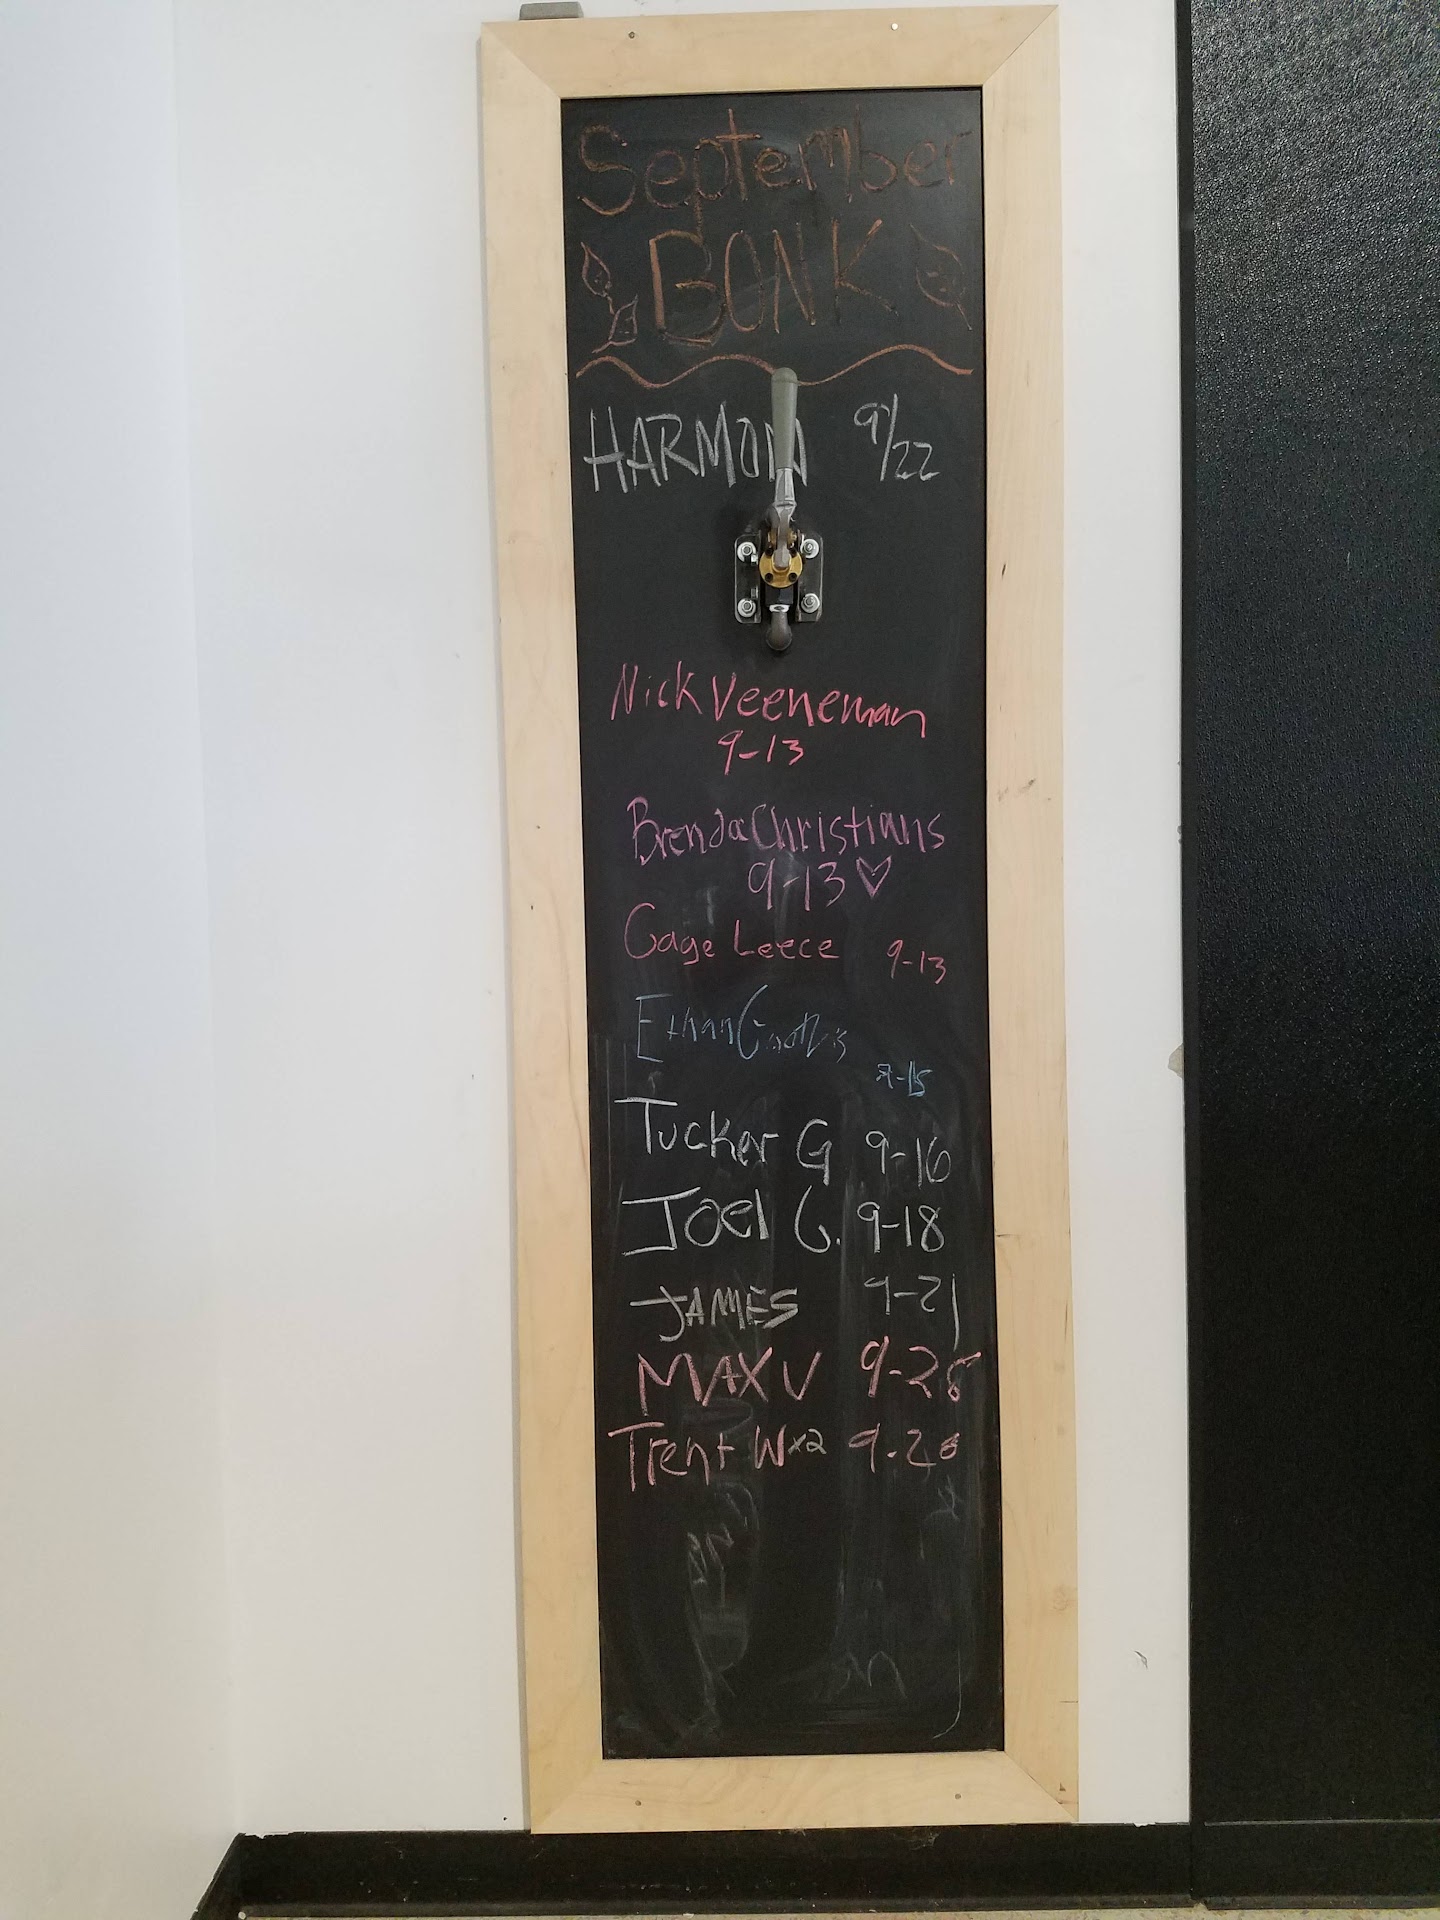 September
BONK
HARMON 9/22
Nick Veeneman
9-13
Brenda Christians
9-13♡
Gage Leece 9-13
Ethan
Tucker G 9-16
Joel G. 9-18
JAMES 9-21
MAX V
Trent W x2